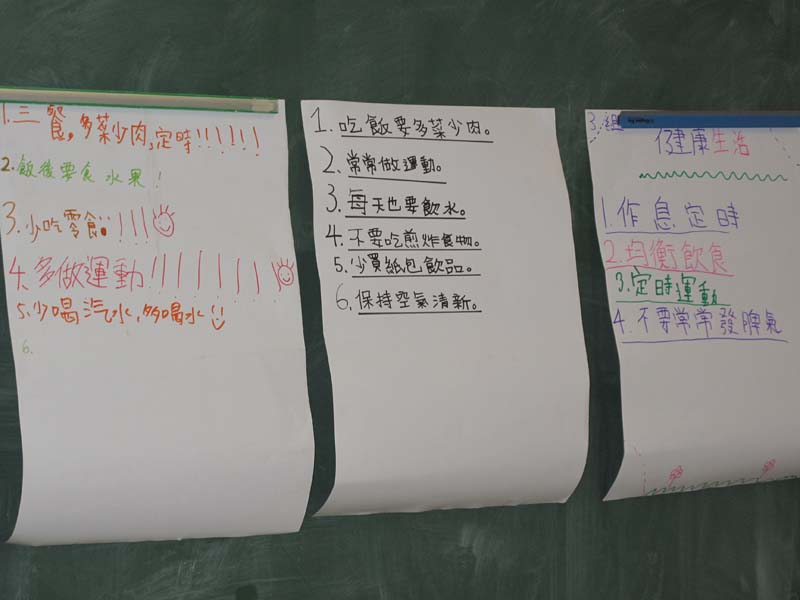 1.三餐,多菜少肉,定時!!!!!!
2.飯後要食水果!
3.少吃零食!!!!
4.多做運動!!!!!!!
5.少喝汽水,多喝水!!
6.
1.吃飯要多菜少肉。
2.常常做運動。
3.每天也要飲水。
4.不要吃煎炸食物。
5.少買紙包飲品。
6.保持空氣清新。
3.組
健康生活
1.作息定時
2.均衡飲食
3.定時運動
4.不要常常發脾氣